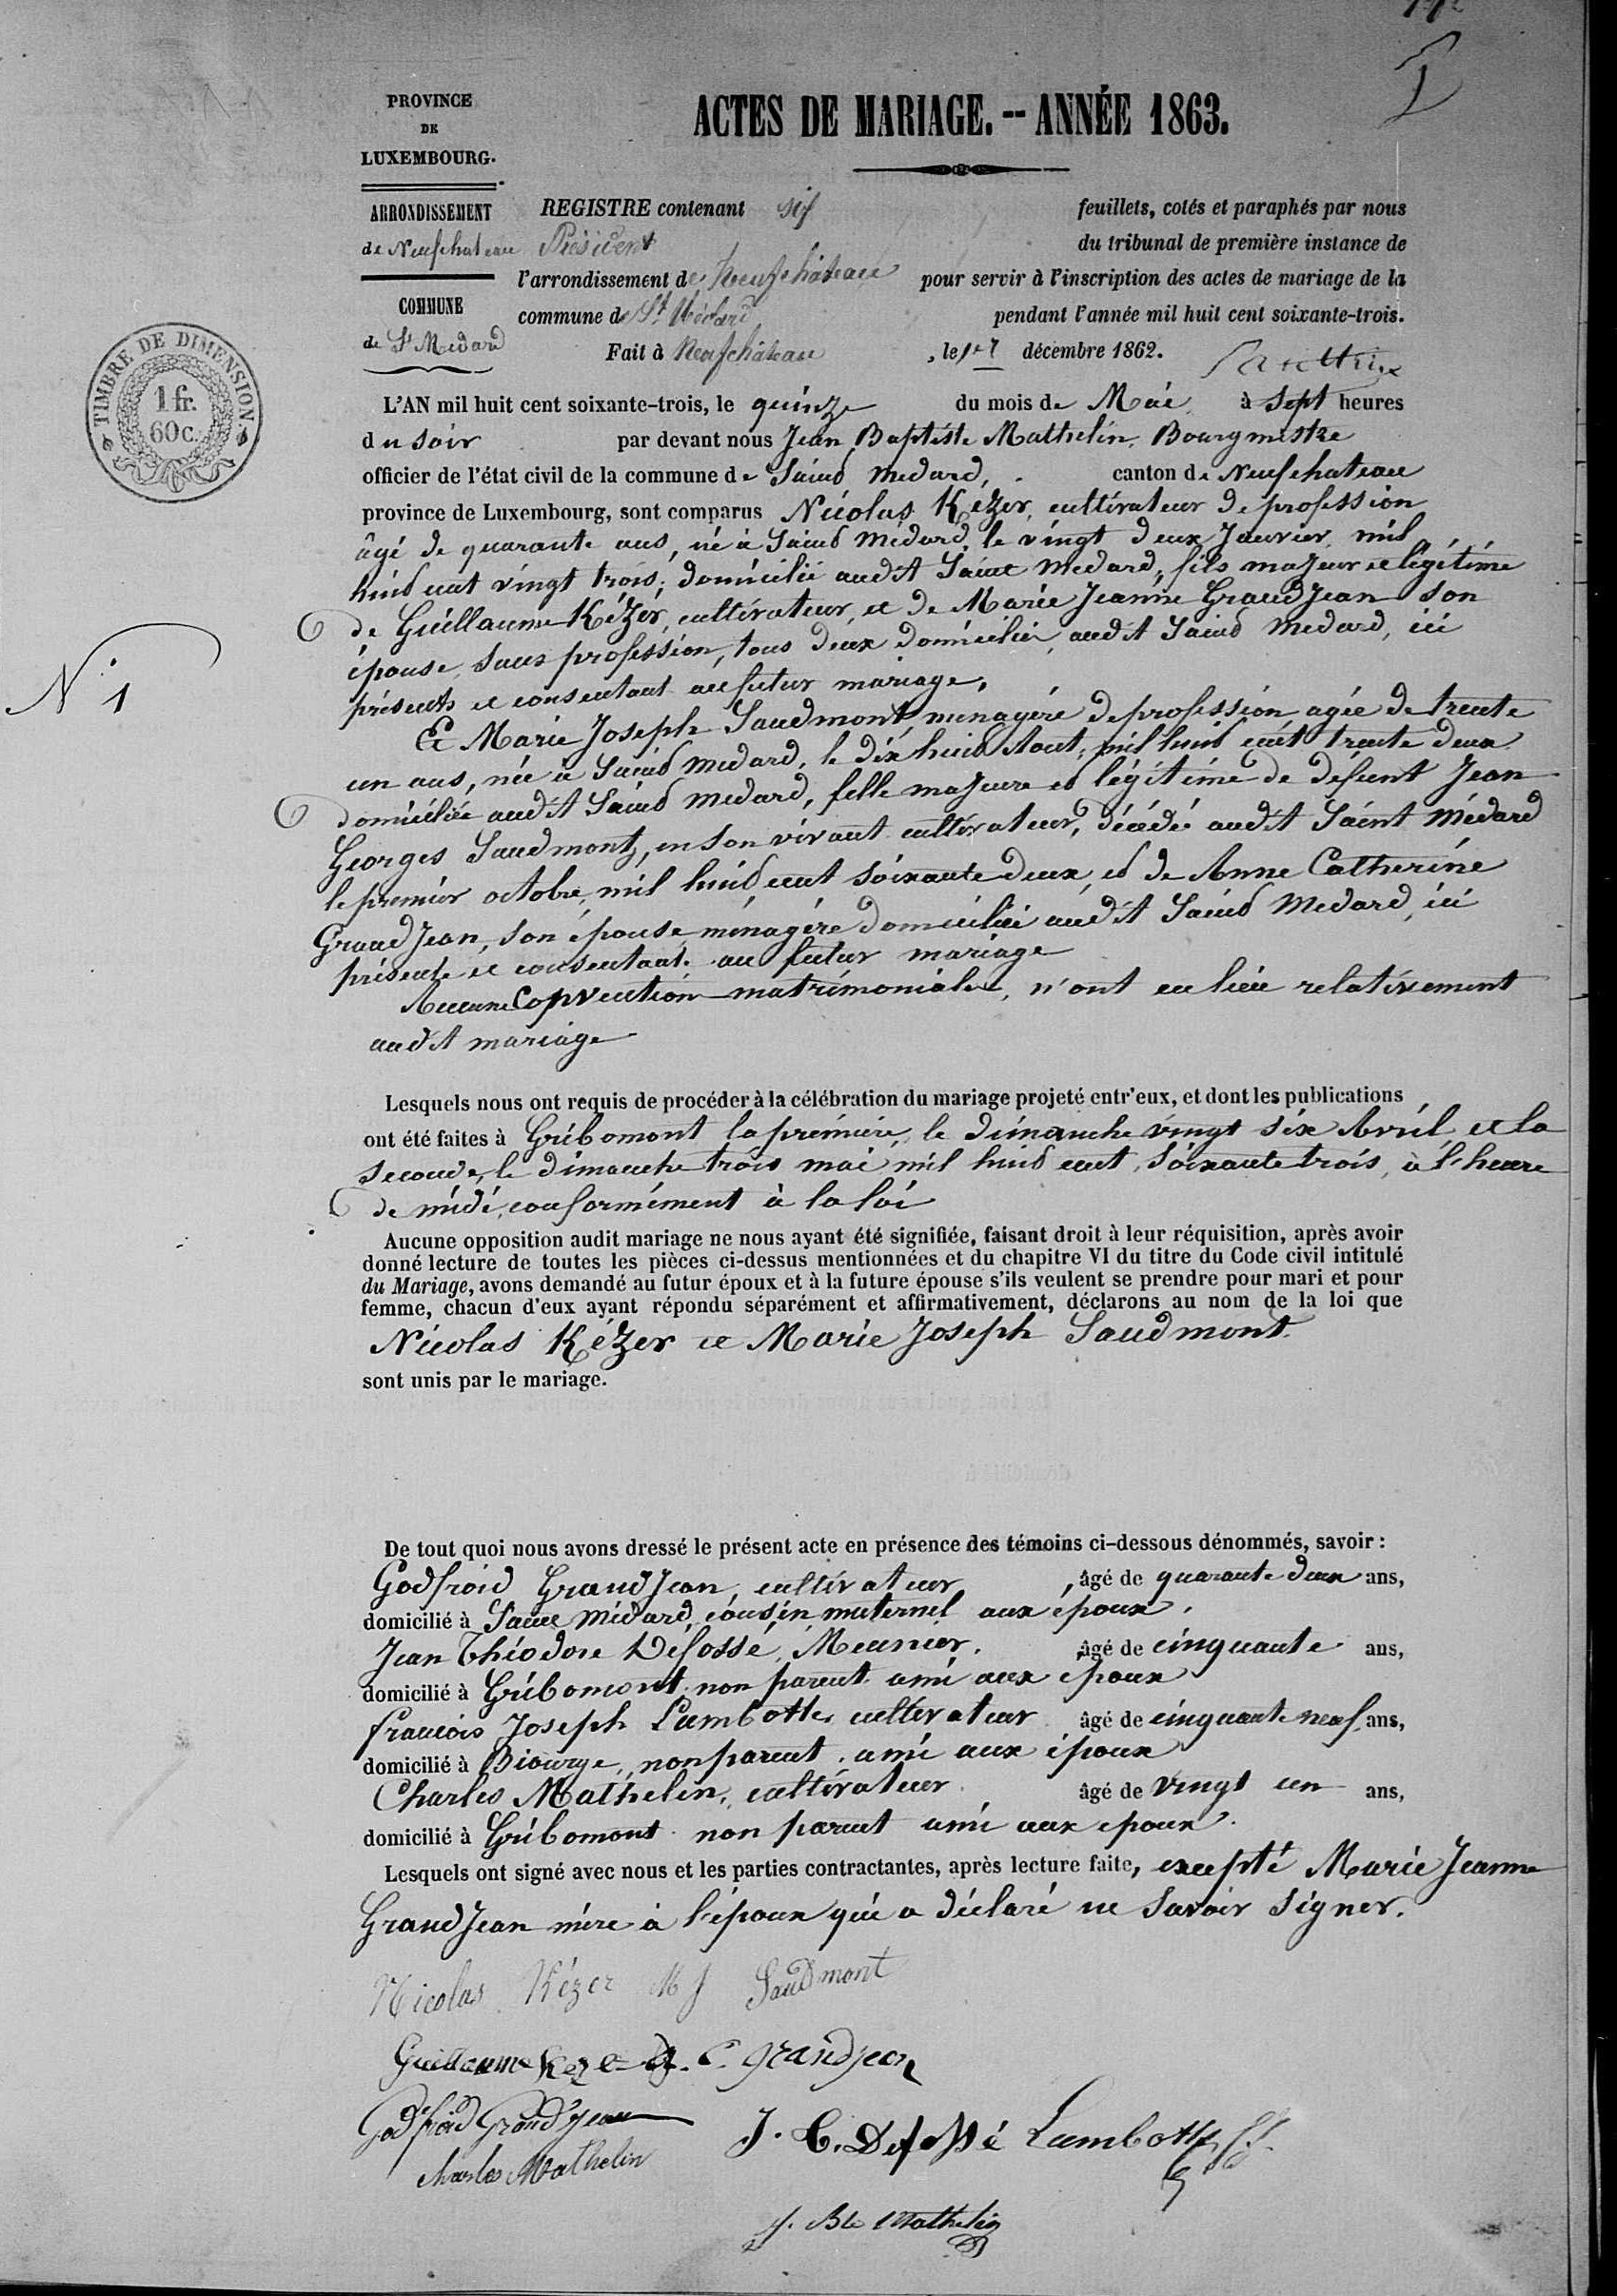 PROVINCE
DE
LUXEMBOURG.
ARRONDISSEMENT
de Neufchateau
COMMUNE
de St Medard
TIMBRE DE DIMENSION.
1 fr.
60 c.
ACTES DE MARIAGE. -- ANNÉE 1863.
1
REGISTRE contenant six feuillets, cotés et paraphés par nous
Président du tribunal de première instance de
l'arrondissement de Neufchâteau pour servir à l'inscription des actes de mariage de la
commune de St Médard pendant l'année mil huit cent soixante-trois.
Fait à Neufchâteau, le 1er décembre 1862.
L'AN mil huit cent soixante-trois, le quinze du mois de Mai à sept heures
du soir par devant nous Jean Baptiste Mathelin, Bourgmestre
officier de l'état civil de la commune de Saint Medard, canton de Neufchateau
province de Luxembourg, sont comparus Nicolas Kézer, cultivateur de profession
âgé de quarante ans, né à Saint Médard, le vingt deux Janvier mil
huit cent vingt trois, domicilié audit Saint Medard, fils majeur et légitime
de Guillaume Kézer, cultivateur, et de Marie Jeanne GrandJean son
épouse, sans profession, tous deux domiciliés audit Saint Medard, ici
présents et consentant au futur mariage.
N° 1
Et Marie Joseph Saudmont, menagére de profession agée de trente
un ans, née à Saint Medard, le dix huit Aout, mil huit cent trente deux
domiciliée audit Saint Medard, fille majeure et légitime de défunt Jean
Georges Saudmont, en son vivant cultivateur, décédé audit Saint Médard
le premier octobre, mil huit cent soixante deux, et de Anne Catherine
GrandJean, son épouse, ménagére domiciliée audit Saint Medard, ici
présente et consentant au futur mariage
Aucune Convention matrimoniales, n'ont eu lieu relativement
audit mariage
Lesquels nous ont requis de procéder à la célébration du mariage projeté entr'eux, et dont les publications
ont été faites à Gribomont la première, le dimanche vingt six Avril et la
seconde, le dimanche trois mai mil huit cent soixante trois, à l'heure
de midi, conformément à la loi
Aucune opposition audit mariage ne nous ayant été signifiée, faisant droit à leur réquisition, après avoir
donné lecture de toutes les pièces ci-dessus mentionnées et du chapitre VI du titre du Code civil intitulé
du Mariage, avons demandé au futur époux et à la future épouse s'ils veulent se prendre pour mari et pour
femme, chacun d'eux ayant répondu séparément et affirmativement, déclarons au nom de la loi que
Nicolas Kézer et Marie Joseph Saudmont
sont unis par le mariage.
De tout quoi nous avons dressé le présent acte en présence des témoins ci-dessous dénommés, savoir :
Godfroid GrandJean, cultivateur, âgé de quarante deux ans,
domicilié à Saint Médard, cousin maternel aux époux.
Jean Théodore Defossé, Meunier, âgé de cinquante ans,
domicilié à Gribomont non parent ami aux époux
francois Joseph Lambotte, cultivateur âgé de cinquante neuf ans,
domicilié à Biourge, non parent, ami aux époux
Charles Mathelin, cultivateur âgé de vingt un ans,
domicilié à Gribomont non parent ami aux epoux.
Lesquels ont signé avec nous et les parties contractantes, après lecture faite, excepté Marie Jeanne
GrandJean mère à l'époux qui a déclaré ne savoir signer.
Nicolas Kézer M J Saudmont
Guillaume Kezer A. C. grandjean
Godfroid Grandjean
J. T. Defossé Lambotte f J
Charles Mathelin
J. Bte Mathelin